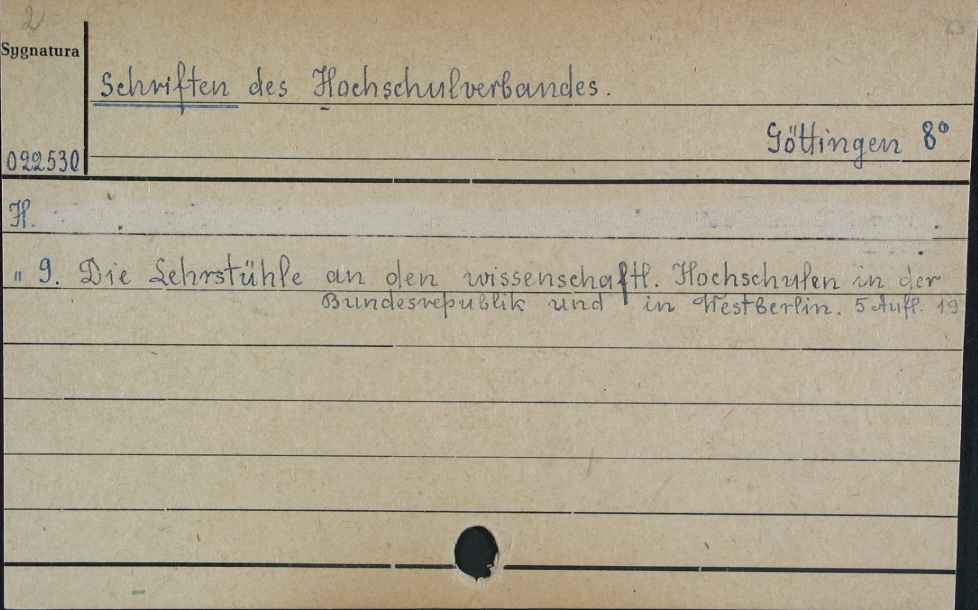 2
Sygnatura
Schriften des Hochschulverbandes.
Göttingen 8°
022530
H.
" 9. Die Lehrstühle an den wissenschaftl. Hochschulen in der
Bundesrepublik und in Westberlin. 5 Aufl. 19